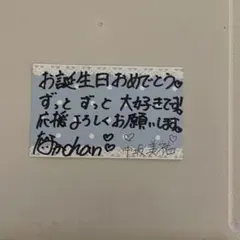 お誕生日おめでとう♡
ずっとずっと大好きです!
応援よろしくお願いします。
chan♡